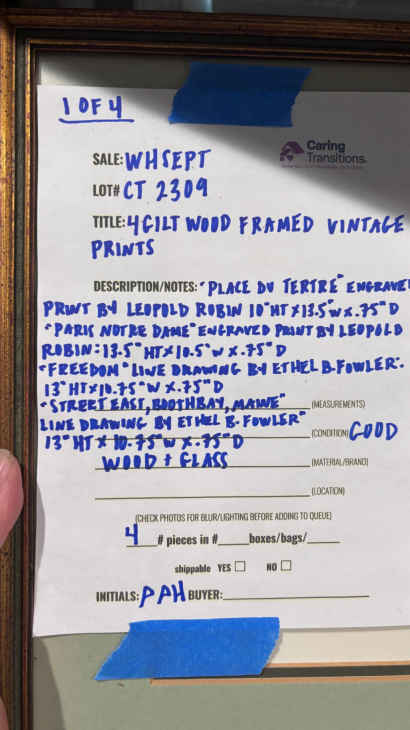 1 OF 4
Caring
Transitions.
SALE: WHSEPT
LOT# CT 2309
TITLE: 4 GILT WOOD FRAMED VINTAGE
PRINTS
DESCRIPTION/NOTES: "PLACE DU TERTRE" ENGRAVE
PRINT BY LEOPOLD ROBIN 10"HT X 13.5"W X .75"D
"PARIS NOTRE DAME" ENGRAVED PRINT BY LEOPOLD
ROBIN: 13.5" HT X 10.5"W X .75"D
"FREEDOM" LINE DRAWING BY ETHEL B. FOWLER:
13"HT X 10.75"W X .75"D
"STREET EAST, BOOTHBAY, MAINE" (MEASUREMENTS)
LINE DRAWING BY ETHEL B. FOWLER"
13"HT X 10.75"W X .75"D (CONDITION) GOOD
WOOD + GLASS (MATERIAL/BRAND)
(LOCATION)
(CHECK PHOTOS FOR BLUR/LIGHTING BEFORE ADDING TO QUEUE)
4 # pieces in #____boxes/bags/____
shippable YES ☐ NO ☐
INITIALS: PAH BUYER: